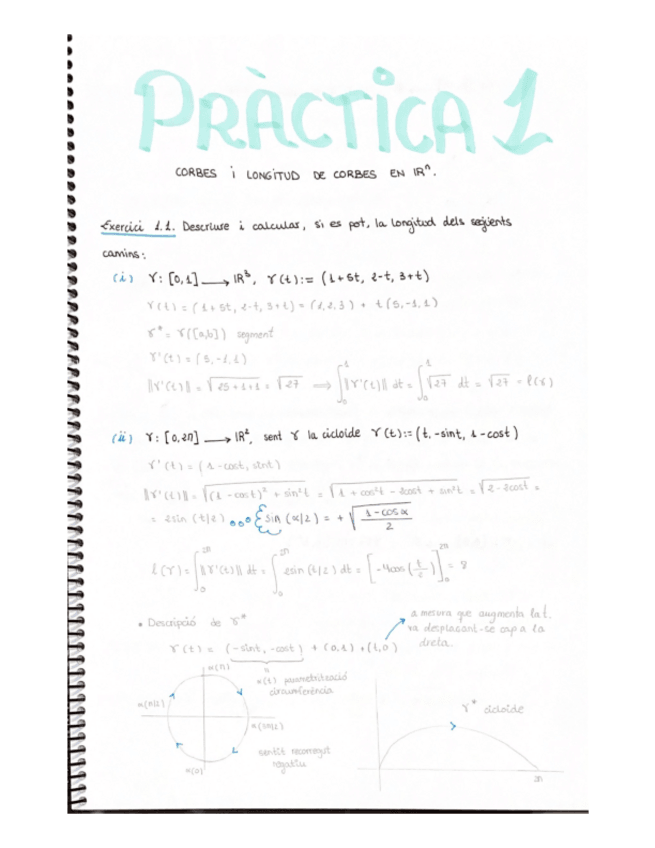 PRÀCTICA 1
CORBES i LONGITUD DE CORBES EN IRⁿ.
Exercici 1.1. Descriure i calcular, si es pot, la longitud dels següents
camins:
(i) γ: [0,1] → IR³, γ(t):= (1+5t, 2-t, 3+t)
γ(t) = (1+5t, 2-t, 3+t) = (1,2,3) + t(5,-1,1)
γ* = γ([a,b]) segment
γ'(t) = (5,-1,1)
||γ'(t)|| = √(25+1+1) = √27 ⟹ ∫₀¹ ||γ'(t)|| dt = ∫₀¹ √27 dt = √27 = l(γ)
(ii) γ: [0,2π] → IR², sent γ la cicloide γ(t):= (t,-sint, 1-cost)
γ'(t) = (1-cost, sint)
||γ'(t)|| = √((1-cost)² + sin²t) = √(1+cos²t - 2cost + sin²t) = √(2-2cost) =
= 2sin(t/2) sin(α/2) = +√((1-cosα)/2)
l(γ) = ∫₀^2π ||γ'(t)|| dt = ∫₀^2π 2sin(t/2) dt = [-4cos(t/2)]₀^2π = 8
• Descripció de γ*
a mesura que augmenta la t.
va desplaçant-se cap a la
dreta.
γ(t) = (-sint, -cost) + (0,1) + (t,0)
α(t) parametrització
circumferència
α(π)
α(π/2)
α(3π/2)
α(0)
sentit recorregut
negatiu
γ* cicloide
2π